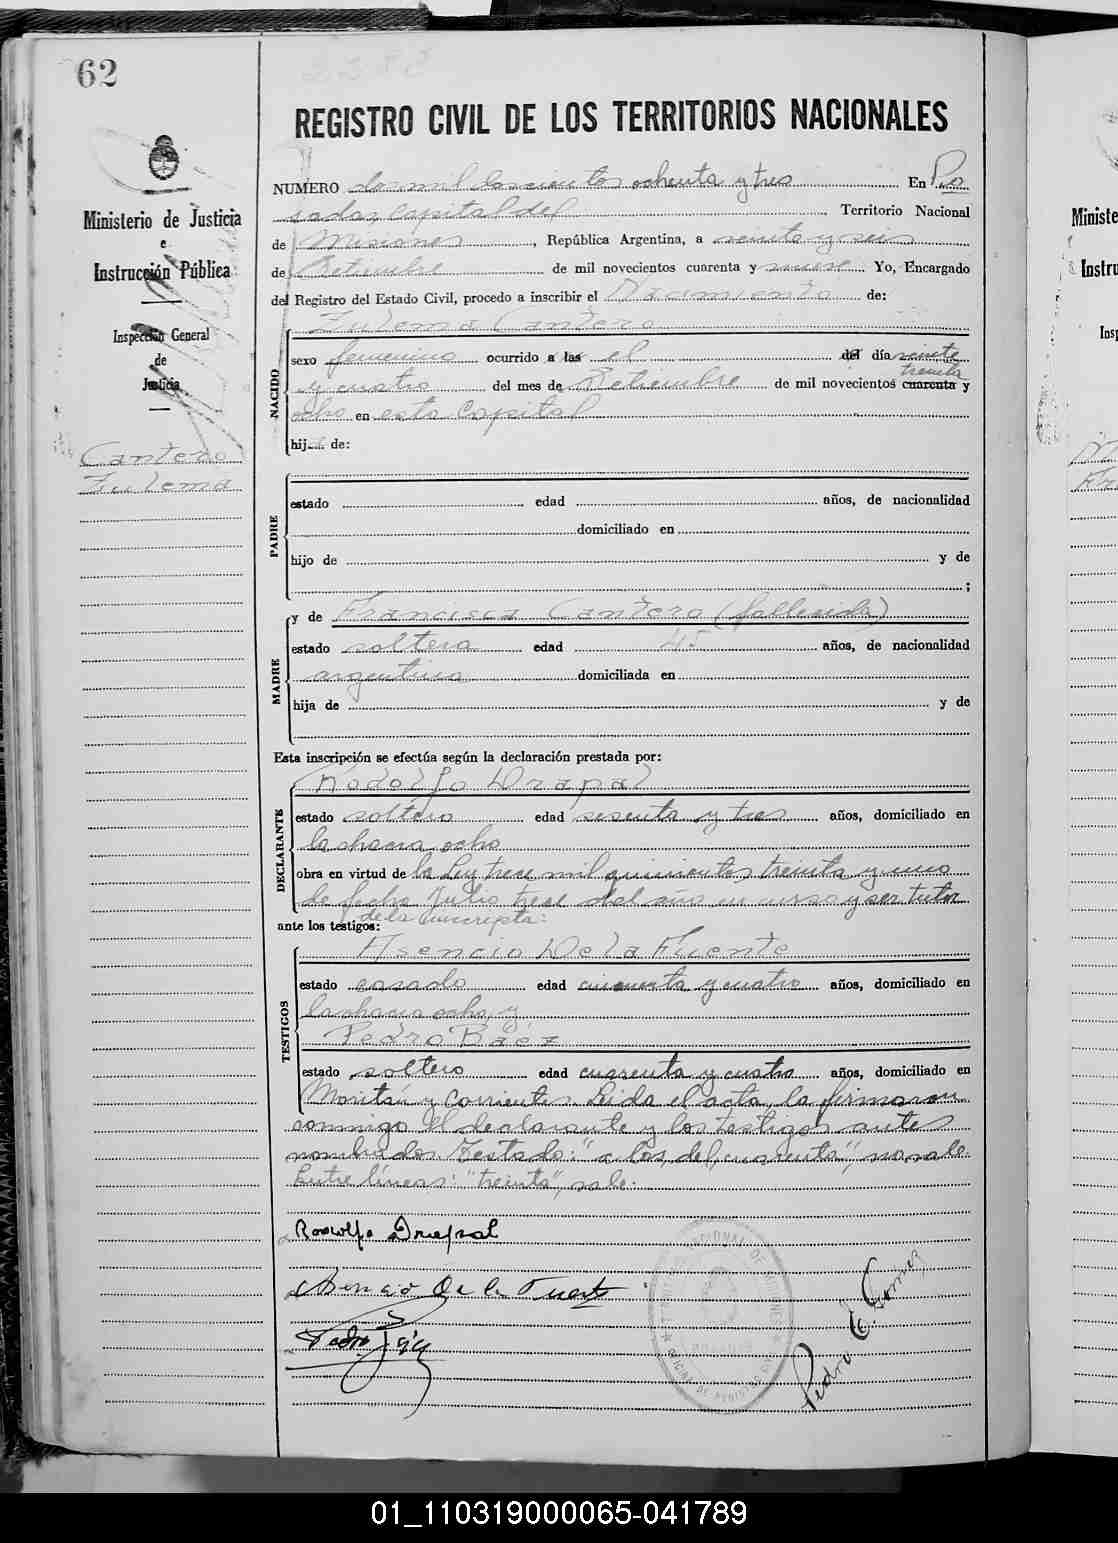 62
REGISTRO CIVIL DE LOS TERRITORIOS NACIONALES
Ministerio de Justicia
e
Instrucción Pública
Inspección General
de
Justicia
Cantero
Zulema
NUMERO dos mil doscientos ochenta y tres En Po
sadas, Capital del Territorio Nacional
de Misiones, República Argentina, a veinte y seis
de Setiembre de mil novecientos cuarenta y nueve Yo, Encargado
del Registro del Estado Civil, procedo a inscribir el Nacimiento de:
Zulema Cantero
NACIDO
sexo femenino ocurrido a las el del día veinte
treinta
y cuatro del mes de Setiembre de mil novecientos cuarenta y
ocho en esta Capital
hij de:
PADRE
estado edad años, de nacionalidad
domiciliado en
hijo de y de
;
MADRE
y de Francisca Cantero (fallecida)
estado soltera edad 45 años, de nacionalidad
argentina domiciliada en
hija de y de
Esta inscripción se efectúa según la declaración prestada por:
DECLARANTE
Rodolfo Drapal
estado soltero edad sesenta y tres años, domiciliado en
la chacra ocho
obra en virtud de la Ley trece mil quinientos treinta y uno
de fecha Julio trece del año en curso y ser tutor
de la inscripta:
ante los testigos:
TESTIGOS
Asencio De la Fuente
estado casado edad cincuenta y cuatro años, domiciliado en
la chacra ocho, y
Pedro Báez
estado soltero edad cuarenta y cuatro años, domiciliado en
y Corrientes. Leída el acta, la firmaron
conmigo el declarante y los testigos antes
nombrados. Testado: "a las, del, cuarenta", no vale.
Entre líneas: "treinta", vale.
Rodolfo Drapal
Asencio De la Fuente
Pedro Báez
Pedro E. Gomez
TERRITORIO NACIONAL DE MISIONES
OFICINA DE REGISTRO CIVIL
POSADAS
Ministe
Instru
Insp
01_110319000065-041789